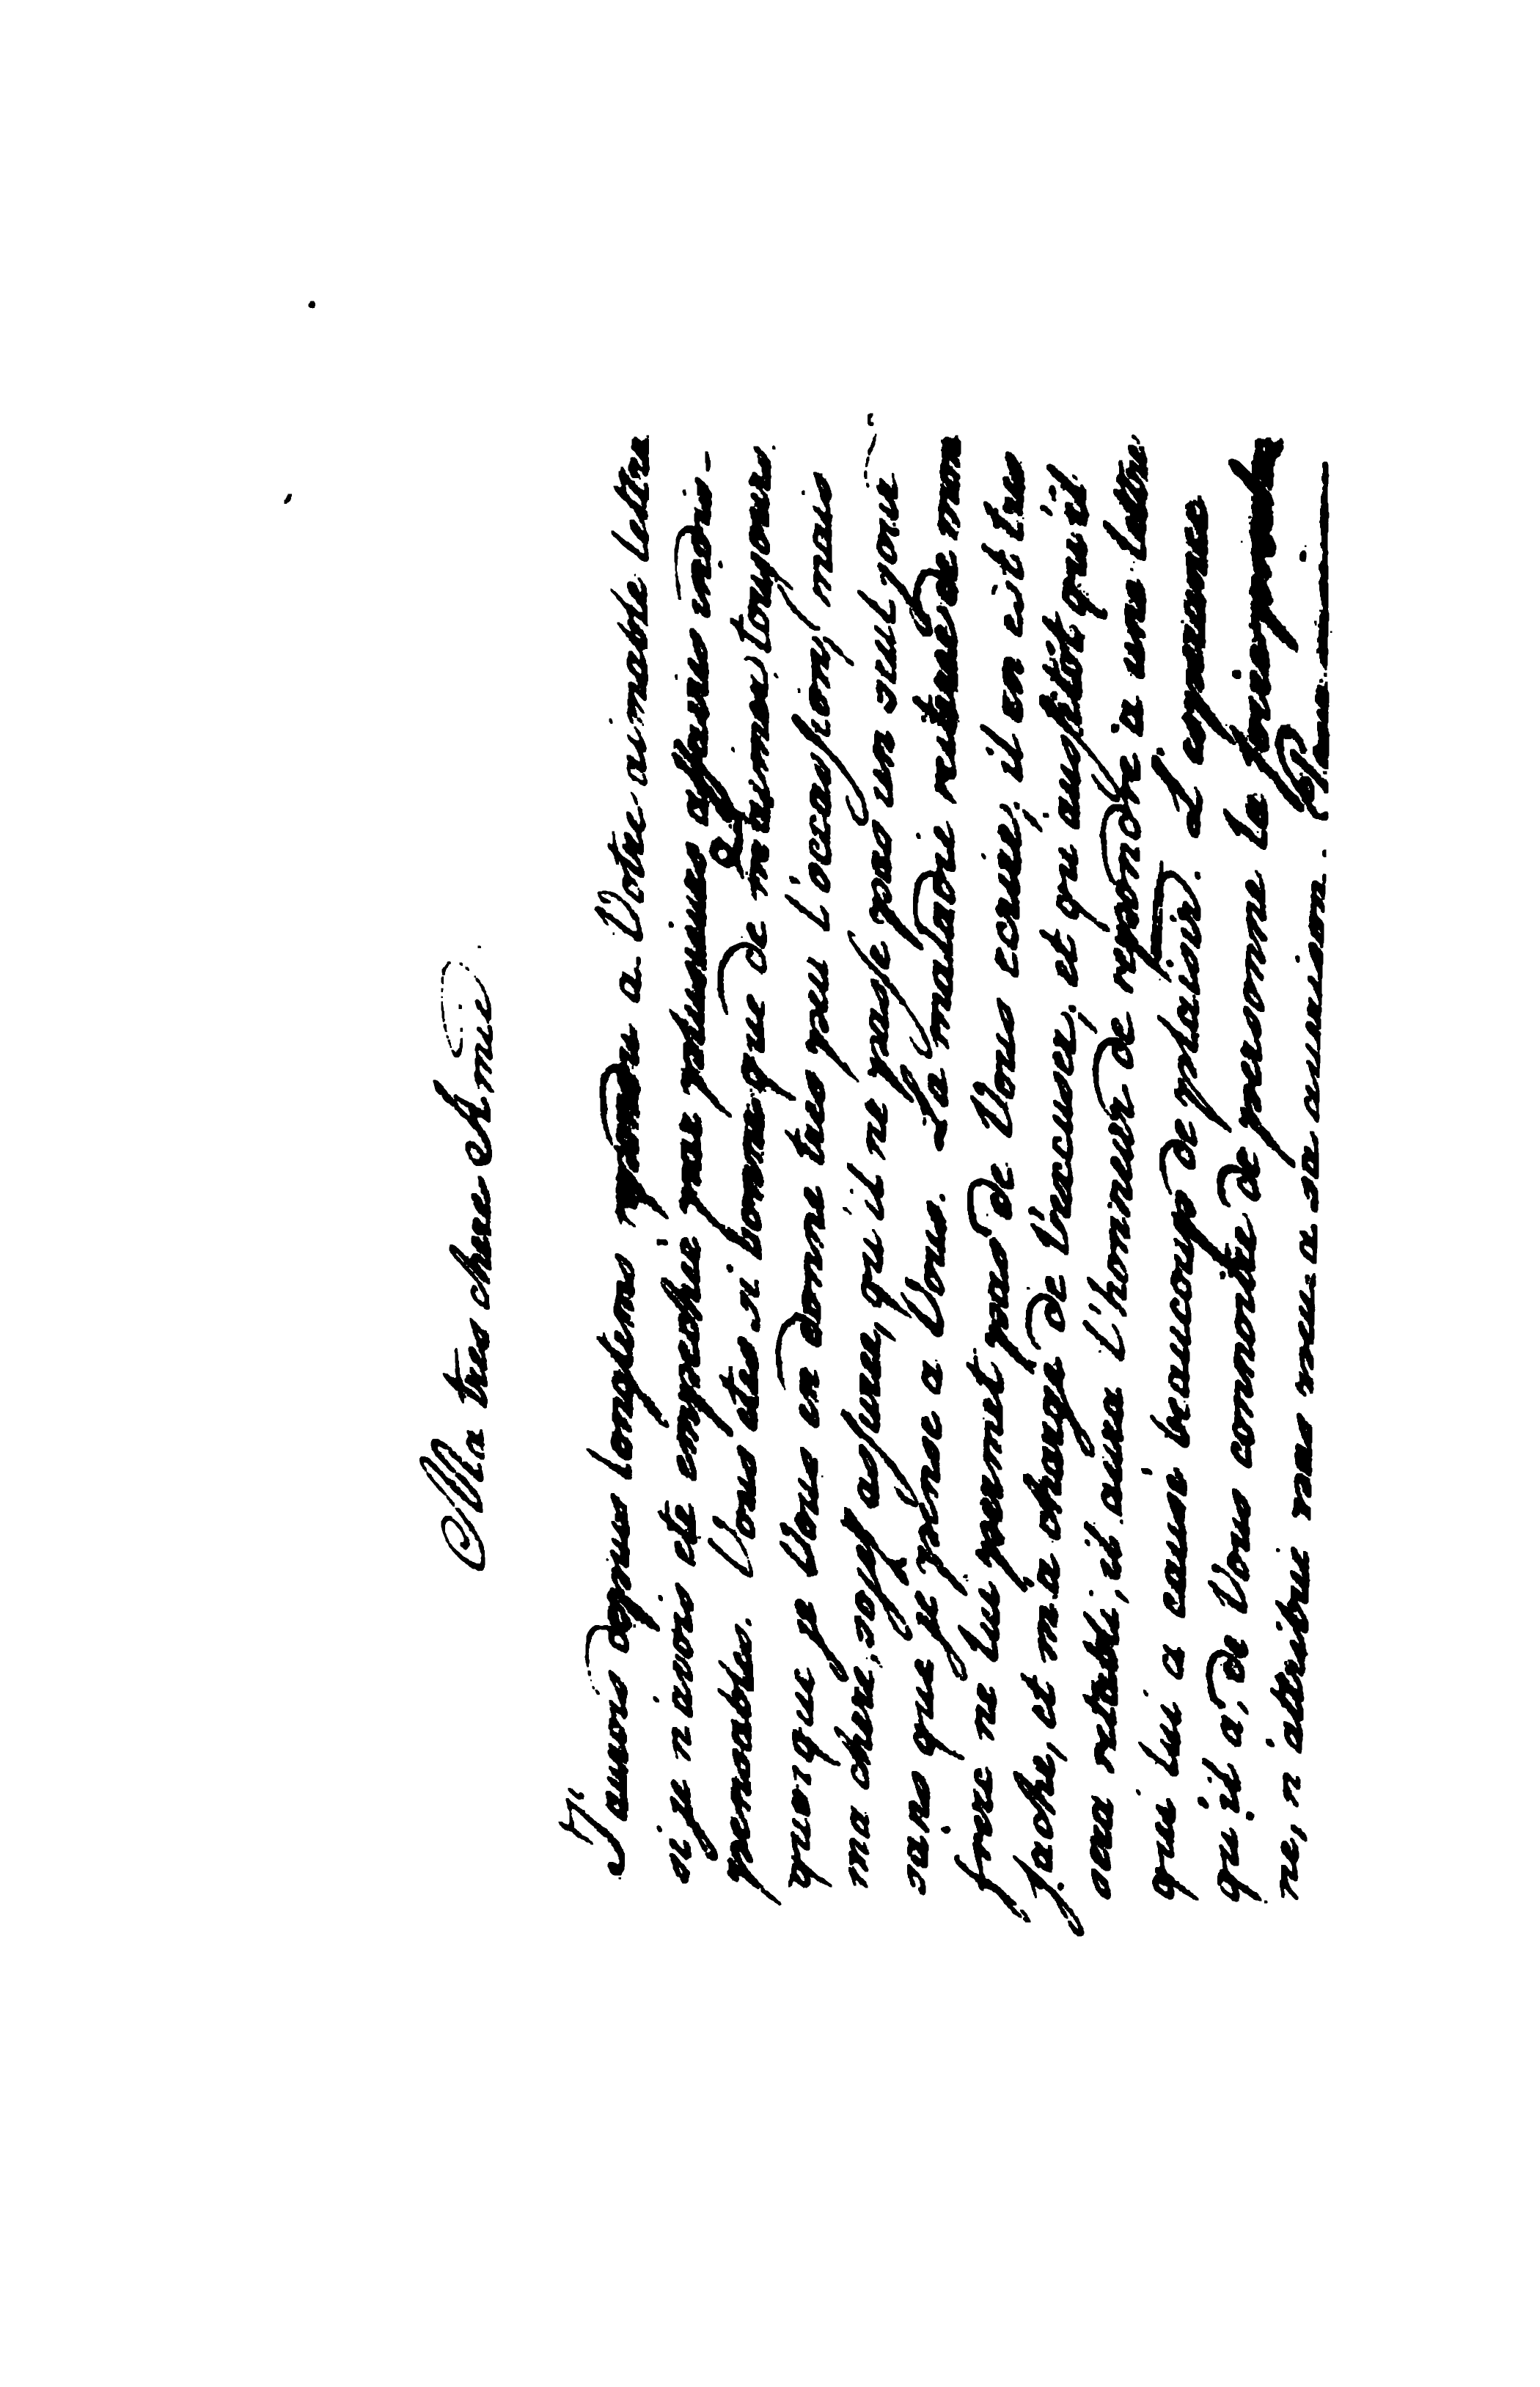 Ma tres chere et Amie
J'aurois depuis longtems repondu a Votre aimable lettre
si je n'avois eté empechée par plusieurs affaires indis-
pensables. Vous etes si bonne que de m'aimer toujours
quoique je Vous en donne tres peu l'occassion, mais
ma chere soyez assurée, qu'il ne passe pas un seul jour
sans que je pense a Vous. La maladie de mon
frere ne lui permet pas de Vous ecrire, il en est tres
faché, et m'a chargé de l'excuser, et qu'aussitot qu'il
sera retabli, il aura l'honneur de repondre a une lettre
qui lui a causé beaucoup de plaisir. L'esperance
qu'il a, de Vous connoitre de personne la
ne, n'attribue pas peu a sa guerison.